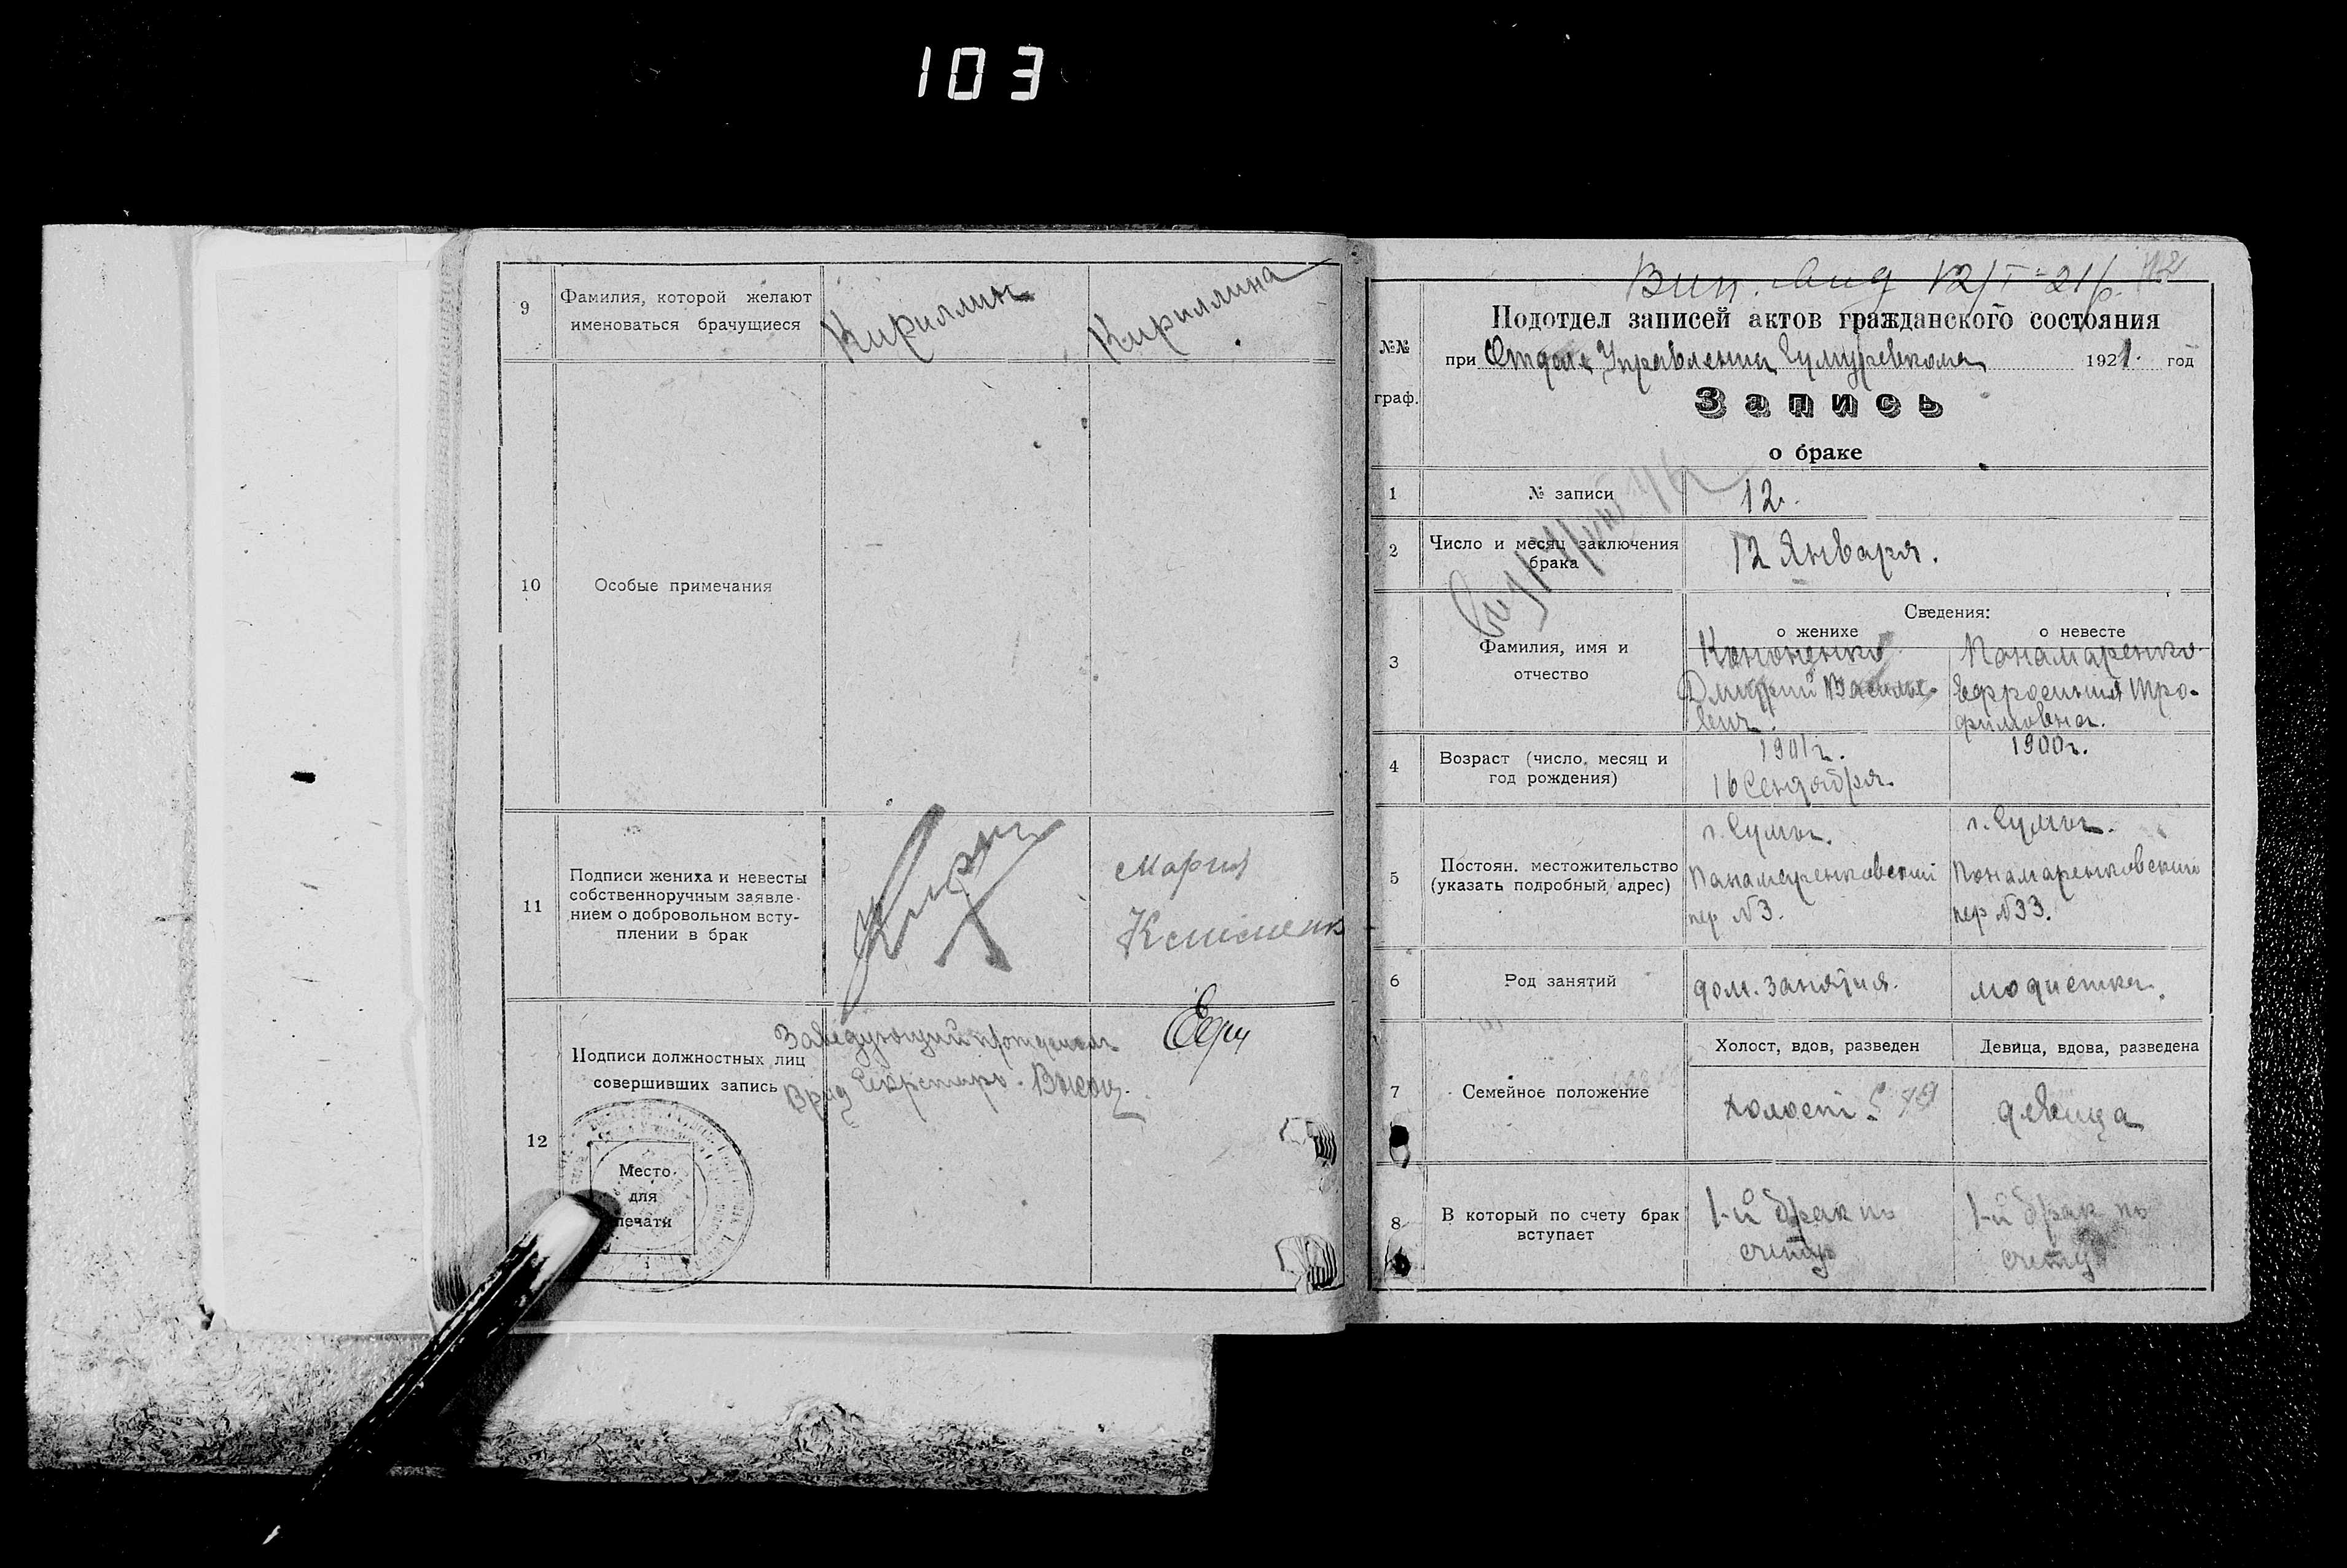 103
9
Фамилия, которой желают
именоваться брачущиеся
Кириллин
Кириллина
10
Особые примечания
11
Подписи жениха и невесты
собственноручным заявле-
нием о добровольном всту-
плении в брак
Мария
Клименк
12
Подписи должностных лиц
совершивших запись
Заведующий
Врид Секретаря
Место
для
печати
12/I-21 г.
№№
граф.
Подотдел записей актов гражданского состояния
при Отделе Управления Сумуревкома 1921 год
Запись
о браке
1
№ записи
12.
2
Число и месяц заключения
брака
12 Января.
3
Фамилия, имя и
отчество
Сведения:
о женихе
Кононенко
Дмитрий Василье-
вич.
о невесте
Понамаренко
Ефросиния Тро-
фимовна.
4
Возраст (число, месяц и
год рождения)
1901 г.
16 Сентября.
1900 г.
5
Постоян. местожительство
(указать подробный адрес)
г. Сумы.
Панамаренковский
пер №3.
г. Сумы.
Понамаренковский
пер №33.
6
Род занятий
дом. занятия.
модистка.
7
Семейное положение
Холост, вдов, разведен
холост
Девица, вдова, разведена
девица
8
В который по счету брак
вступает
1-й брак по
счету
1-й брак по
счету